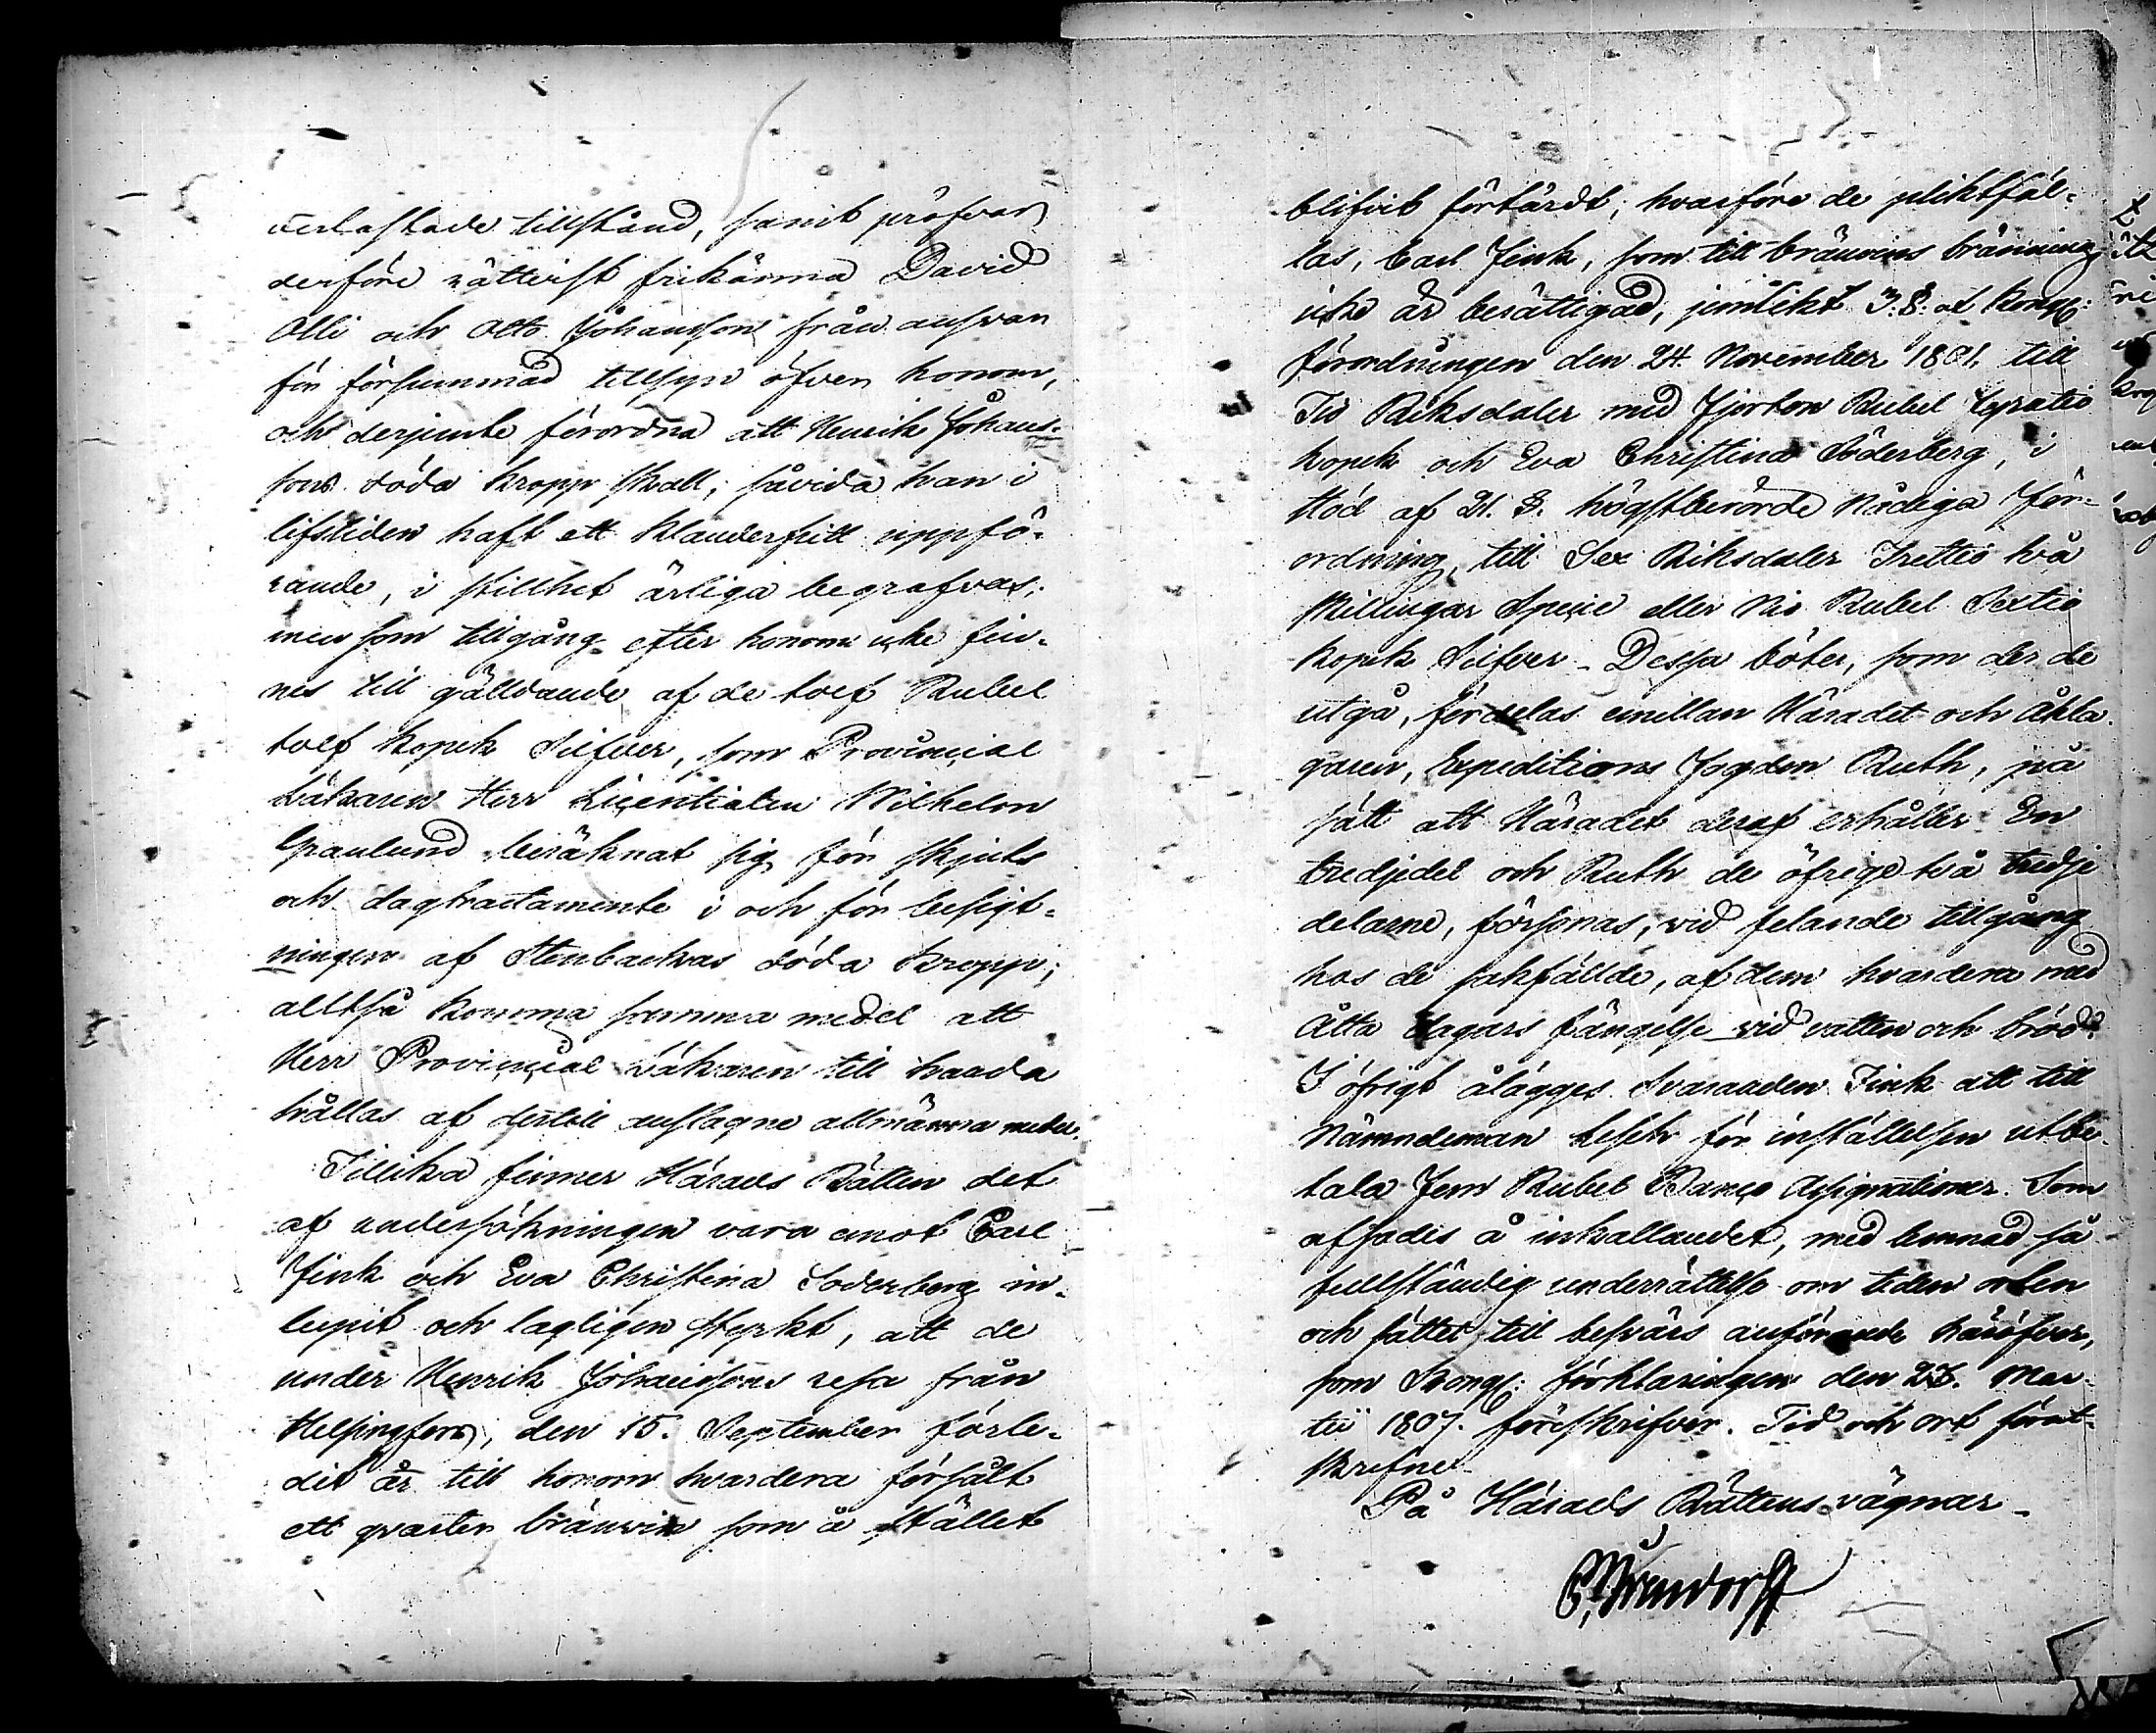 verlastade tillstånd, samt pröfvar
derföre rättvist frikänna David
Olli och Otto Johansson från ansvar
för försummad tillsyn öfver honom,
och derjemte förordna att Henrik Johans-
sons döda kropp skall, såvida han i
lifstiden haft ett klanderfritt uppfö-
rande, i stillhet ärliga begrafvas;
men som tillgång efter honom icke fin-
nes till gälldande af de tolf Rubel
tolf kopek Silfver, som Provincial
Läkaren Herr Licentiaten Wilhelm
Granlund beräknat sig för skjuts
och dagtractamente i och för besigt-
ningen af Stenbackas döda kropp;
alltså komma samma medel att
Herr Provincial Läkaren till handa
hållas af dertill anslagne allmänna medel.
Tillika finner Härads Rätten det
af undersökningen vara emot Carl
Fink och Eva Christina Söderberg in-
lupit och lagligen styrkt, att de
under Henrik Johanssons resa från
Helsingfors, den 15. September förle-
dit år till honom hvardera försålt
ett qvarter bränvin som å stället
blifvit förtärdt; hvarföre de pliktfäl-
las, Carl Fink, som till bränvins bränning
icke är berättigad, jemlikt 3. §. af Kongl:
förordningen den 24. November 1801. till
Tio Riksdaler med Fjorton Rubel Fyratio
kopek och Eva Christina Söderberg, i
stöd af 21. §. högstberörde Nådiga För-
ordning, till Sex Riksdaler Trettio två
Skillingar Specie eller Nio Rubel Sextio
kopek Silfver. Dessa böter, som der de
utgå, fördelas emillan Häradet och Åkla-
garen, Expeditions Fogden Ruth, på
sätt att Häradet deraf erhåller En
tredjedel och Ruth de öfrige två tredje
delarne, försonas, vid felande tillgång
hos de sakfällde, af dem hvardera med
Åtta dagars fängelse vid vatten och bröd.
I öfrigt ålägges Svaranden Fink att till
Nämndeman för inställelsen utbe-
tala Fem Rubel Banco Assignationer. Som
afsades å inkallandet, med lemnad så
fullständig underrättelse om tiden orten
och sättet till besvärs anförande häröfver,
som Kongl: förklaringen den 23. Mar-
tii 1807. föreskrifver. Tid och ort förut-
skrefne.
På Härads Rättens vägnar